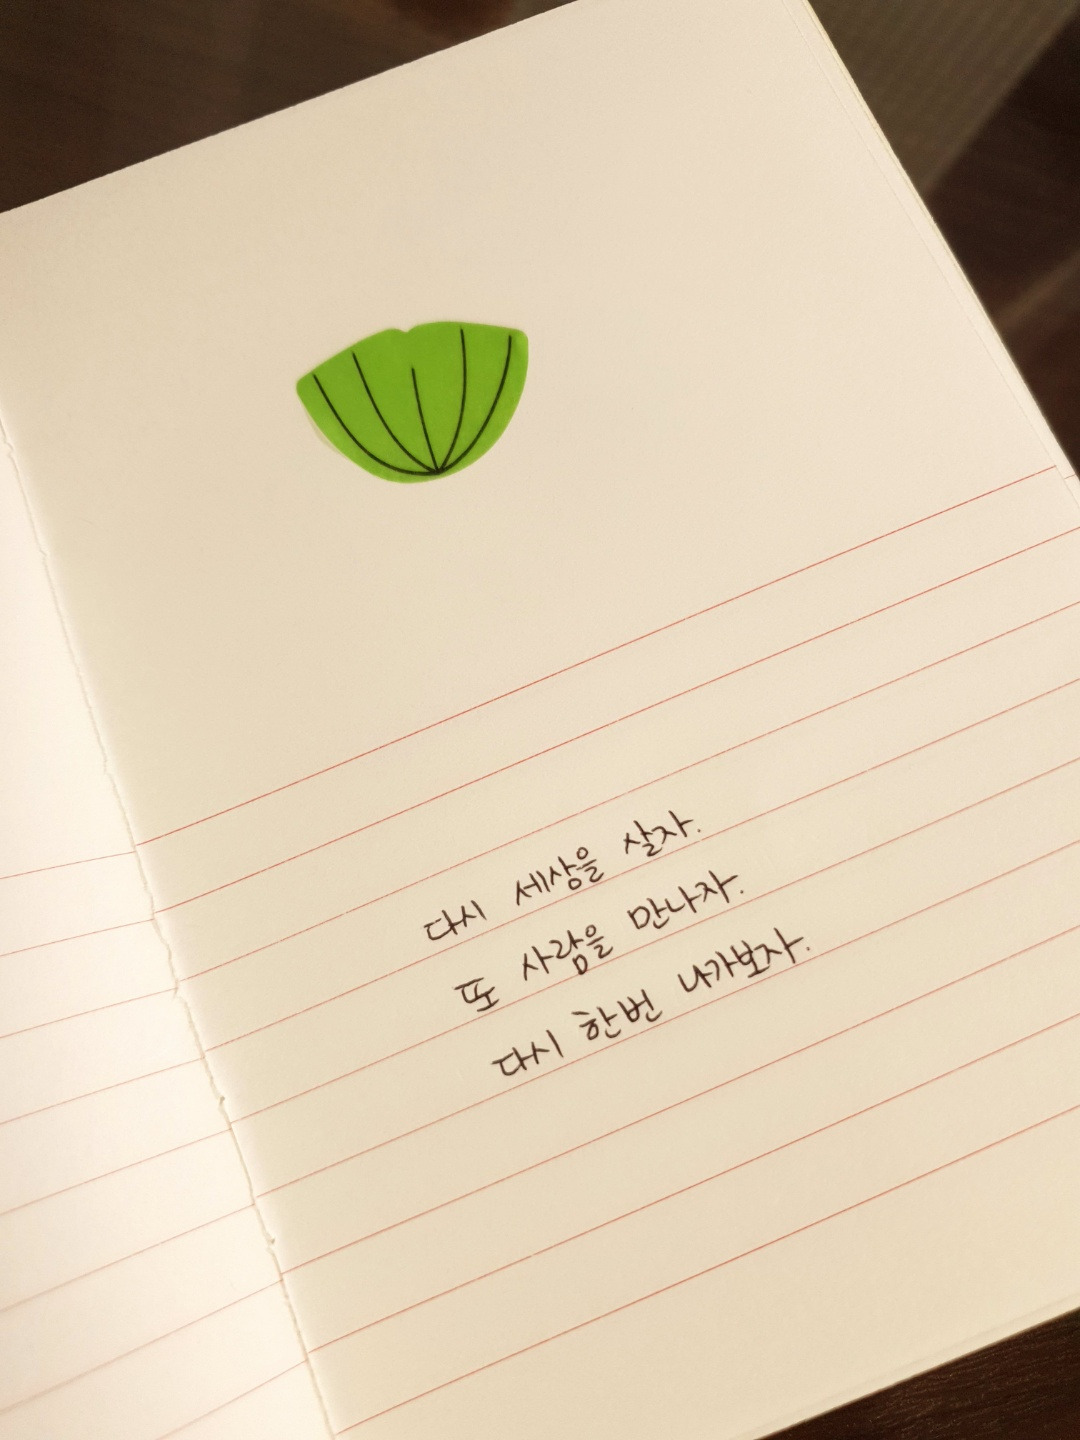 다시 세상을 살자.
또 사람을 만나자.
다시 한번 나가보자.